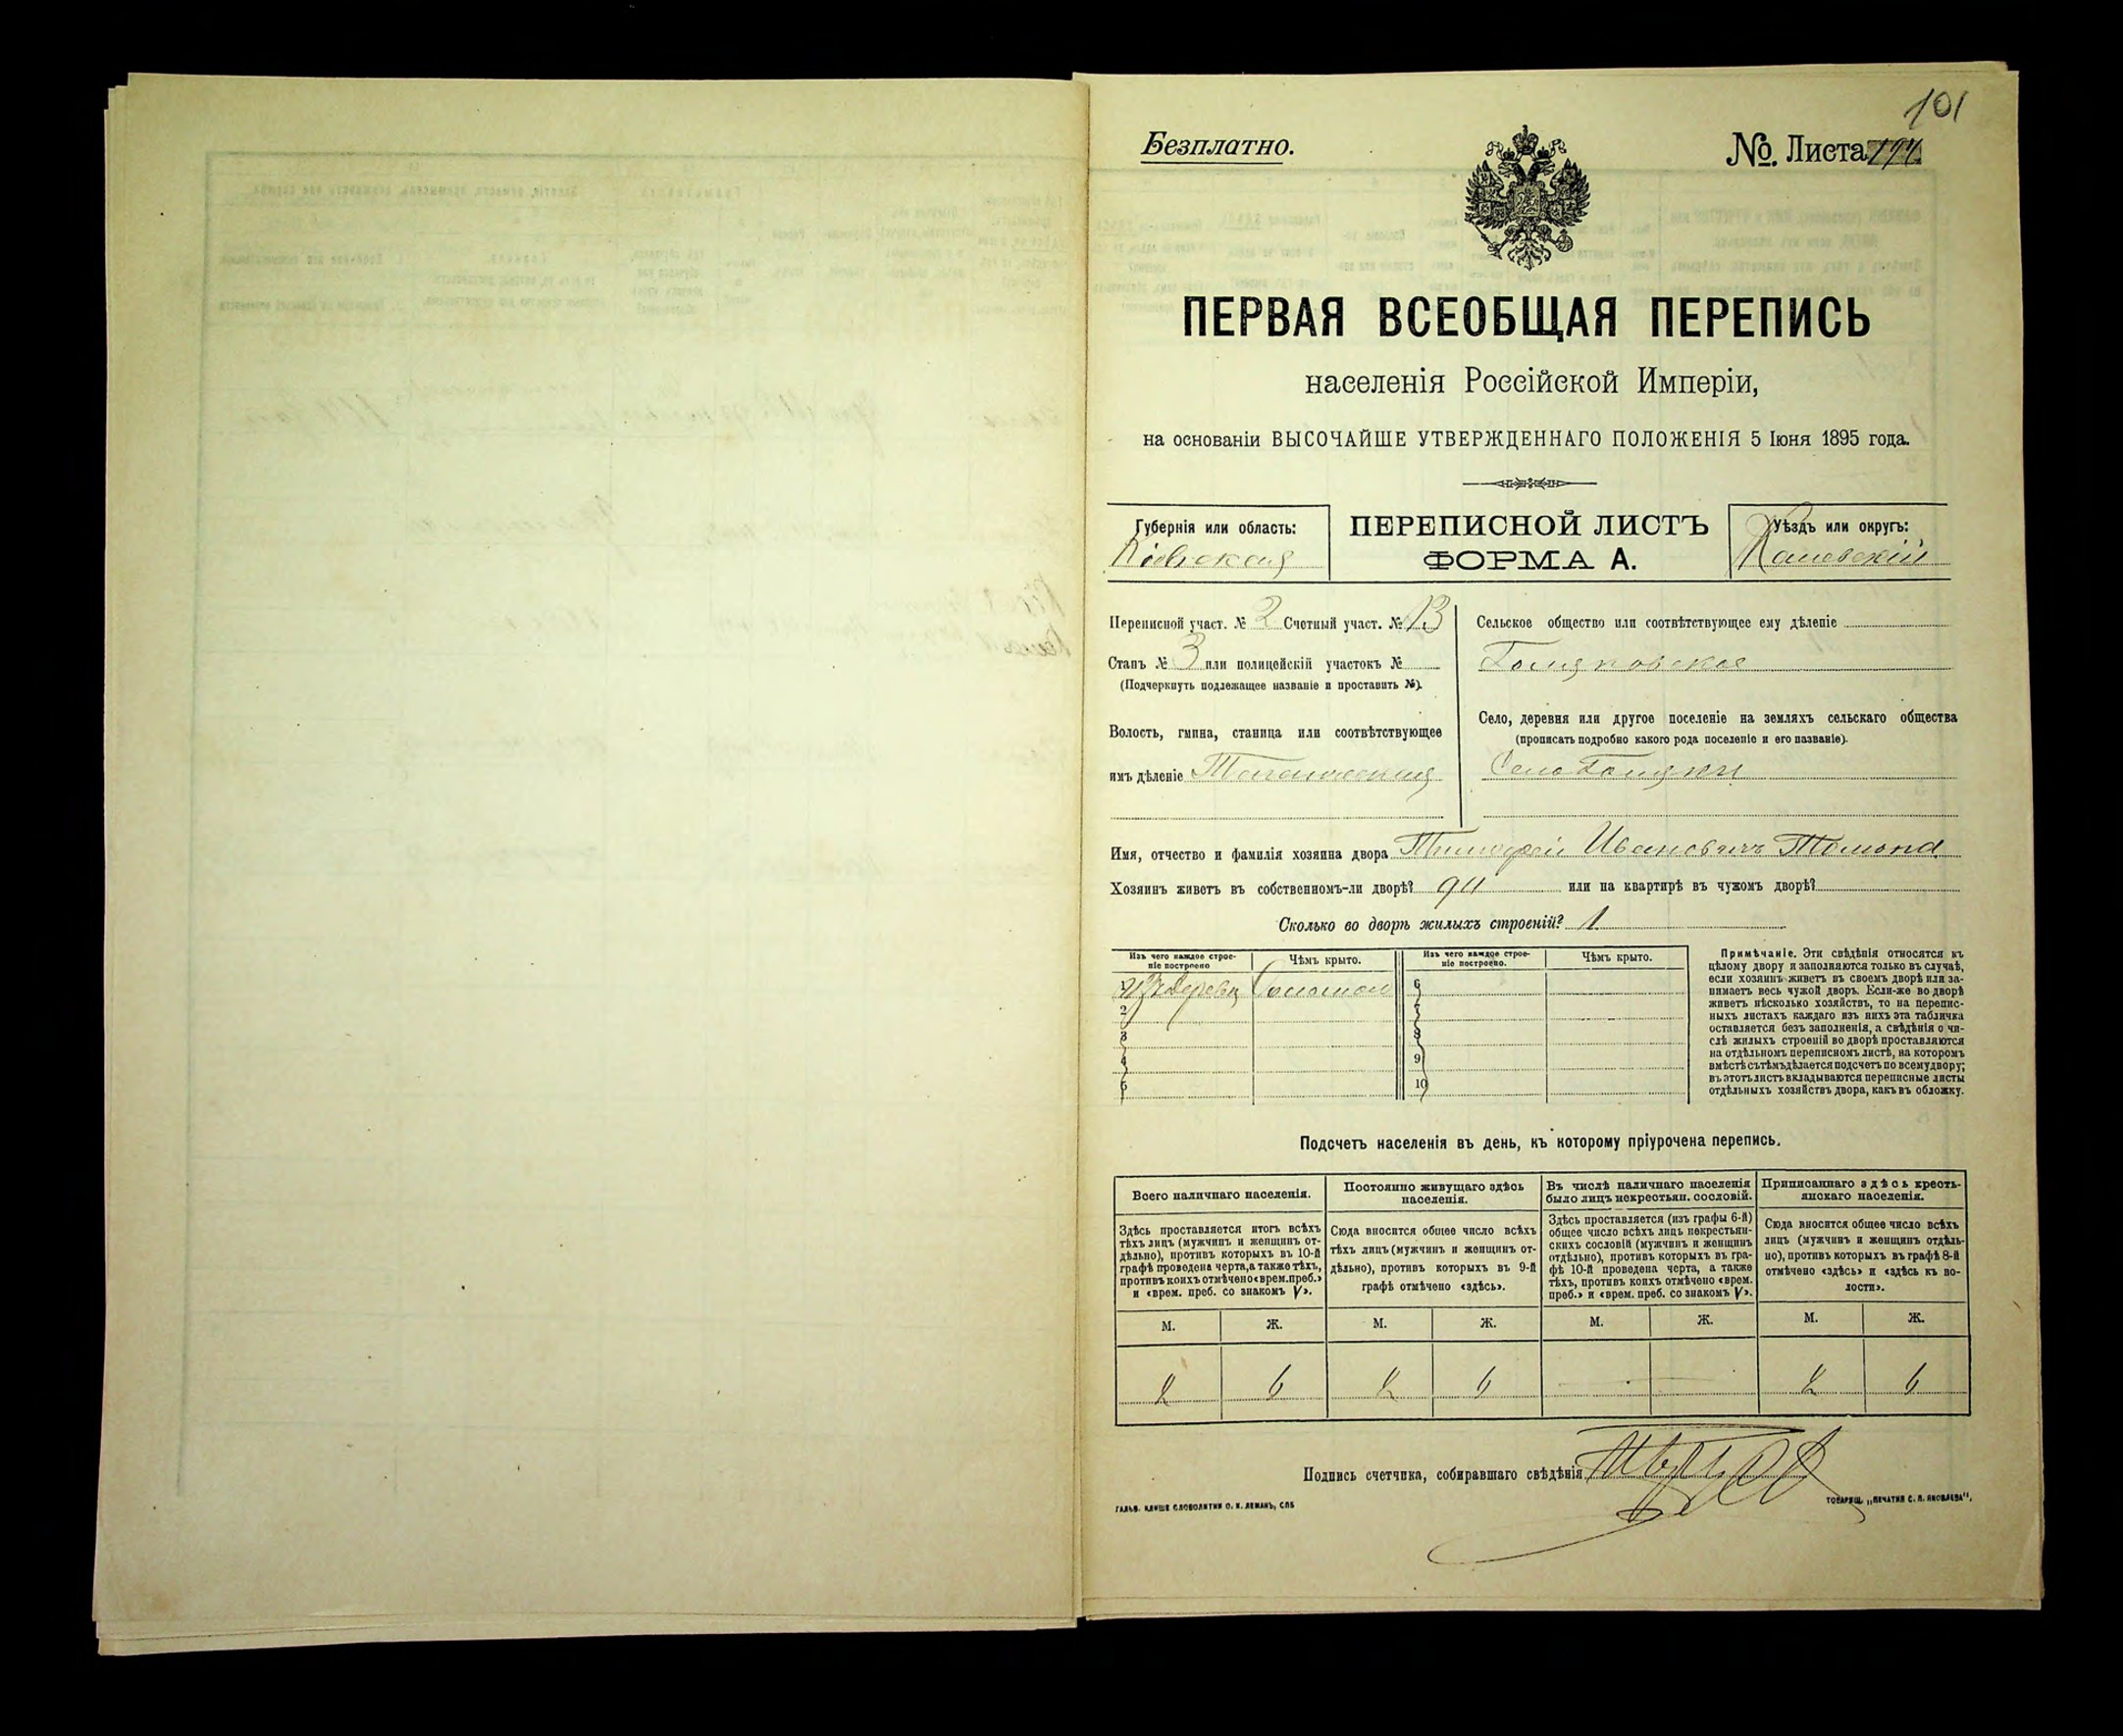 101
Безплатно.
№. Листа 194
ПЕРВАЯ ВСЕОБЩАЯ ПЕРЕПИСЬ
населенія Россійской Имперіи,
на основаніи ВЫСОЧАЙШЕ УТВЕРЖДЕННАГО ПОЛОЖЕНІЯ 5 Іюня 1895 года.
Губернія или область:
Кіевская
ПЕРЕПИСНОЙ ЛИСТЪ
ФОРМА А.
Уѣздъ или округъ:
Каневскій
Переписной участ. № 2 Счетный участ. № 13
Станъ № 3 или полицейскій участокъ №
(Подчеркнуть подлежащее названіе и проставить №).
Волость, гмина, станица или соотвѣтствующее
имъ дѣленіе
Сельское общество или соотвѣтствующее ему дѣленіе
Голяковское
Село, деревня или другое поселеніе на земляхъ сельскаго общества
(прописать подробно какого рода поселеніе и его названіе).
Село Голяки
Имя, отчество и фамилія хозяина двора Тимофей Ивановичъ
Хозяинъ живетъ въ собственномъ-ли дворѣ? да или на квартирѣ въ чужомъ дворѣ?
Сколько во дворѣ жилыхъ строеній? 1
Изъ чего каждое строе-
ніе построено
Чѣмъ крыто.
Изъ чего каждое строе-
ніе построено.
Чѣмъ крыто.
Изъ дерева Соломой
2
3
4
5
6
7
8
9
10
Примѣчаніе. Эти свѣдѣнія относятся къ
цѣлому двору и заполняются только въ случаѣ,
если хозяинъ живетъ въ своемъ дворѣ или за-
нимаетъ весь чужой дворъ. Если-же во дворѣ
живетъ нѣсколько хозяйствъ, то на перепис-
ныхъ листахъ каждаго изъ нихъ эта табличка
оставляется безъ заполненія, а свѣдѣнія о чи-
слѣ жилыхъ строеній во дворѣ проставляются
на отдѣльномъ переписномъ листѣ, на которомъ
вмѣстѣ съ тѣмъ дѣлается подсчетъ по всему двору;
въ этотъ листъ вкладываются переписные листы
отдѣльныхъ хозяйствъ двора, какъ въ обложку.
Подсчетъ населенія въ день, къ которому пріурочена перепись.
Всего наличнаго населенія.
Постоянно живущаго здѣсь
населенія.
Въ числѣ наличнаго населенія
было лицъ некрестьян. сословій.
Приписаннаго здѣсь кресть-
янскаго населенія.
Здѣсь проставляется итогъ всѣхъ
тѣхъ лицъ (мужчинъ и женщинъ от-
дѣльно), противъ которыхъ въ 10-й
графѣ проведена черта, а также тѣхъ,
противъ коихъ отмѣчено «врем. преб.»
и «врем. преб. со знакомъ V».
Сюда вносится общее число всѣхъ
тѣхъ лицъ (мужчинъ и женщинъ от-
дѣльно), противъ которыхъ въ 9-й
графѣ отмѣчено «здѣсь».
Здѣсь проставляется (изъ графы 6-й)
общее число всѣхъ лицъ некрестьян-
скихъ сословій (мужчинъ и женщинъ
отдѣльно), противъ которыхъ въ гра-
фѣ 10-й проведена черта, а также
тѣхъ, противъ коихъ отмѣчено «врем.
преб.» и «врем. преб. со знакомъ V».
Сюда вносится общее число всѣхъ
лицъ (мужчинъ и женщинъ отдѣль-
но), противъ которыхъ въ графѣ 8-й
отмѣчено «здѣсь» и «здѣсь къ во-
лости».
М. Ж. М. Ж. М. Ж. М. Ж.
2 6 2 6 2 6
Подпись счетчика, собиравшаго свѣдѣнія
ГАЛЬВ. КЛИШЕ СЛОВОЛИТНИ О. И. ЛЕМАНЪ, СПБ
ТОВАРИЩ. „ПЕЧАТНЯ С. П. ЯКОВЛЕВА“.